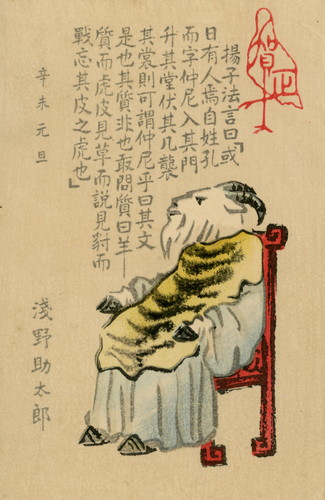 賀正
揚子法言曰「或
曰有人焉自姓孔
而字仲尼入其門
升其堂伏其几襲
其裳則可謂仲尼乎曰其文
是也其質非也敢問質曰羊
質而虎皮見草而說見豺而
戰忘其皮之虎也」
辛未元旦
淺野助太郎